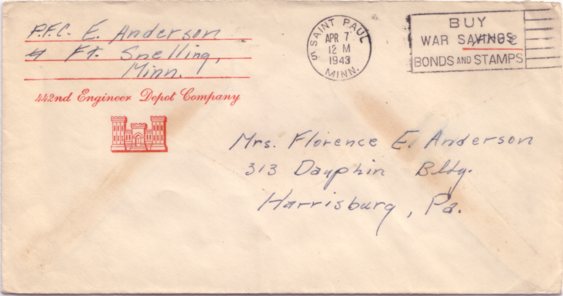 P.F.C. E. Anderson
Ft. Snelling,
Minn.
442nd Engineer Depot Company
SAINT PAUL
APR 7
12 M
1943
MINN.
BUY
WAR SAVINGS
BONDS AND STAMPS
Free
Mrs. Florence E. Anderson
313 Dauphin Bldg.
Harrisburg, Pa.